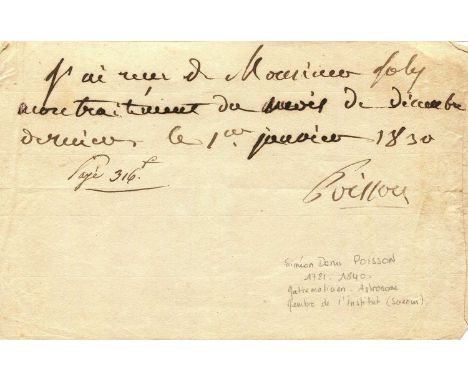 J'ai reçu de Monsieur Joly
mon traitement du mois de décembre
dernier le 1er janvier 1830
316f
Poisson
Siméon Denis POISSON
1781-1840.
Mathématicien - Astronome
Membre de l'Institut (Sciences).